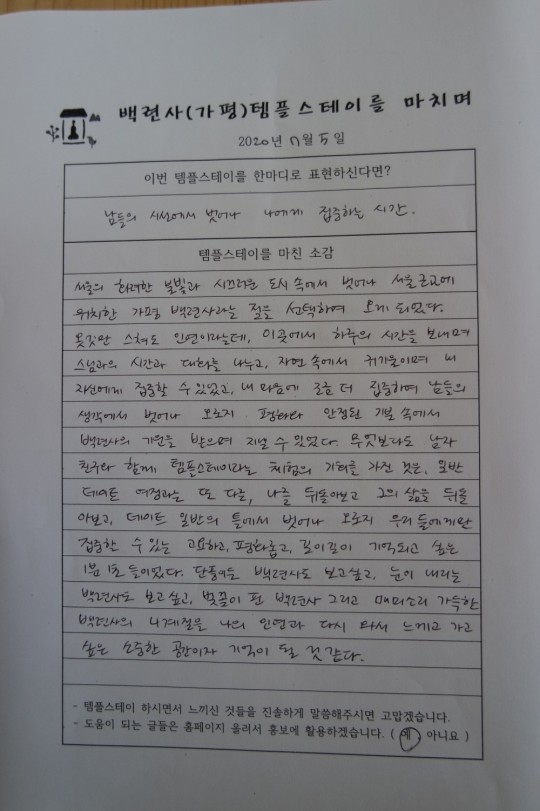 백련사(가평)템플스테이를 마치며
2020년 7월 5일
이번 템플스테이를 한마디로 표현하신다면?
남들의 시선에서 벗어나 나에게 집중하는 시간.
템플스테이를 마친 소감
서울의 화려한 불빛과 시끄러운 도시 속에서 벗어나 서울 근교에
위치한 가평 백련사라는 절을 선택하여 오게 되었다.
옷깃만 스쳐도 인연이라는데, 이곳에서 하루의 시간을 보내며
스님과의 시간과 대화를 나누고, 자연 속에서 귀기울이며 내
자신에게 집중할 수 있었고, 내 마음에 조금 더 집중하며 남들의
생각에서 벗어나 오로지 평화와 안정된 기분 속에서
백련사의 기운을 받으며 지낼 수 있었다. 무엇보다도 남자
친구와 함께 템플스테이라는 체험의 기회를 가진 것은, 일반
데이트 여정과는 또 다른, 나를 뒤돌아보고 그의 삶을 뒤돌
아보고, 데이트 일반의 틀에서 벗어나 오로지 우리들에게만
집중할 수 있는 고요하고, 평화롭고, 길이길이 기억되고 싶은
1분 1초 들이었다. 단풍이든 백련사도 보고싶고, 눈이 내리는
백련사도 보고싶고, 벚꽃이 핀 백련사 그리고 매미소리 가득한
백련사의 4계절을 나의 인연과 다시 와서 느끼고 가고
싶은 소중한 공간이자 기억이 될 것 같다.
- 템플스테이 하시면서 느끼신 것들을 진솔하게 말씀해주시면 고맙겠습니다.
- 도움이 되는 글들은 홈페이지 올려서 홍보에 활용하겠습니다. ( 예 아니요 )